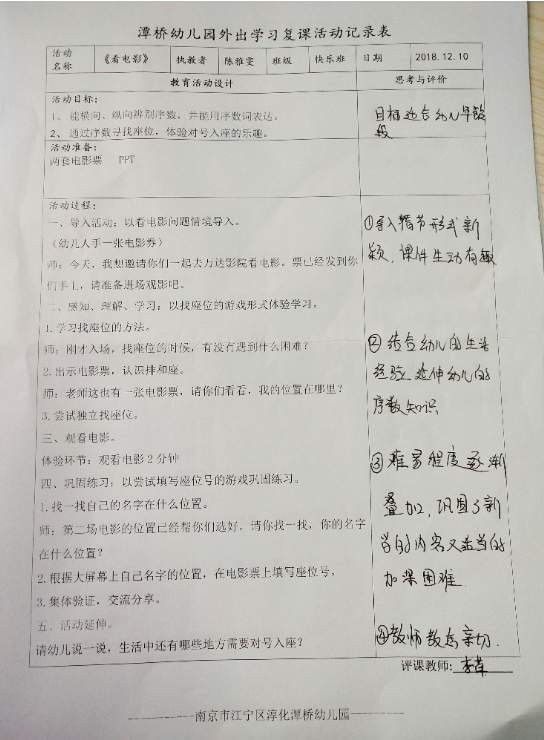 潭桥幼儿园外出学习复课活动记录表
活动名称 《看电影》 执教者 陈雅雯 班级 快乐班 日期 2018.12.10
教育活动设计 思考与评价
活动目标：
1、能横向、纵向辨别序数，并能用序数词表达。
2、通过序数寻找座位，体验对号入座的乐趣。
目标适合幼儿年龄
段
活动准备：
两套电影票 PPT
活动过程：
一、导入活动：以看电影问题情境导入。
（幼儿人手一张电影券）
师：今天，我想邀请你们一起去万达影院看电影。票已经发到你
们手上，请准备进场观影吧。
二、感知、理解、学习：以找座位的游戏形式体验学习。
1.学习找座位的方法。
师：刚才入场，找座位的时候，有没有遇到什么困难？
2.出示电影票，认识排和座。
师：老师这也有一张电影票，请你们看看，我的位置在哪里？
3.尝试独立找座位。
三、观看电影。
体验环节：观看电影2分钟
四、巩固练习：以尝试填写座位号的游戏巩固练习。
1.找一找自己的名字在什么位置。
师：第二场电影的位置已经帮你们选好，请你找一找，你的名字
在什么位置？
2.根据大屏幕上自己名字的位置，在电影票上填写座位号，
3.集体验证，交流分享。
五、活动延伸。
请幼儿说一说，生活中还有哪些地方需要对号入座？
①导入情节形式新
颖，课件生动有趣
②结合幼儿的生活
经验，延伸幼儿的
序数知识
③难易程度逐渐
叠加，巩固了新
学的内容又适当的
加深困难
④教师教态亲切.
评课教师：李萍
南京市江宁区淳化潭桥幼儿园